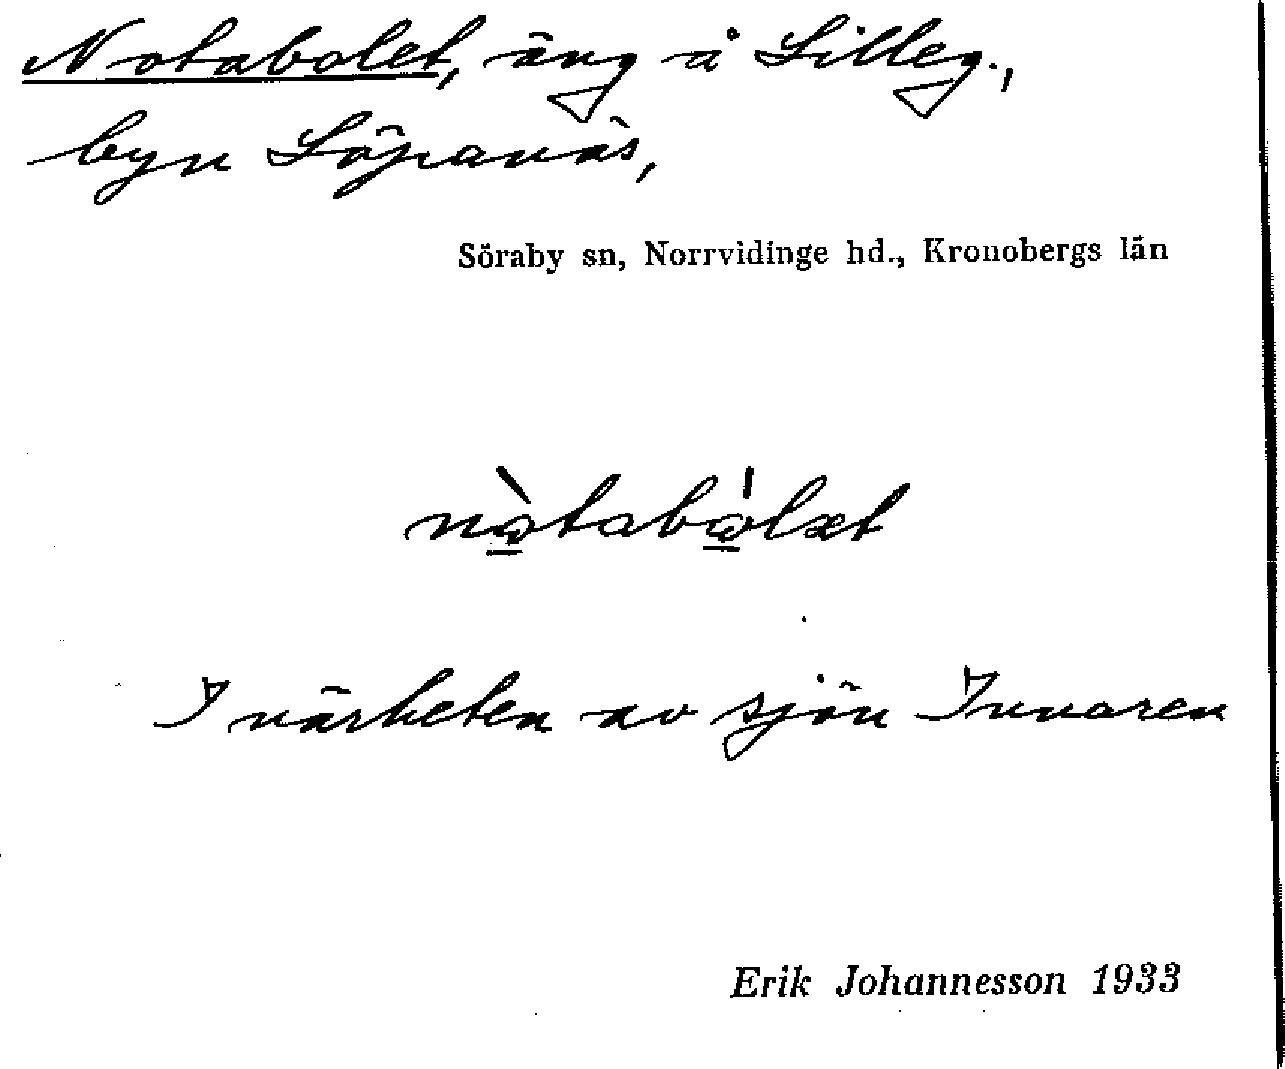 Notabolet, äng å Lilleg.,
byn Löpanäs,
Söraby sn, Norrvidinge hd., Kronobergs län
nò̲tabò̲læt
I närheten av sjön Innaren
Erik Johannesson 1933